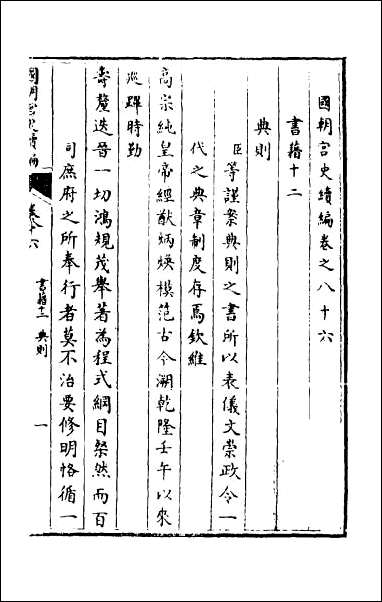 國朝宮史續編卷之八十六
書籍十二
典則
臣等謹案典則之書所以表儀文崇政令一
代之典章制度存焉欽維
高宗純皇帝經猷炳煥模範古今溯乾隆壬午以來
巡蹕時勤
壽釐迭晉一切鴻規茂舉著為程式綱目粲然而百
司庶府之所奉行者莫不治要修明恪循一
國朝宮史續編
卷八十六
書籍十二 典則
一